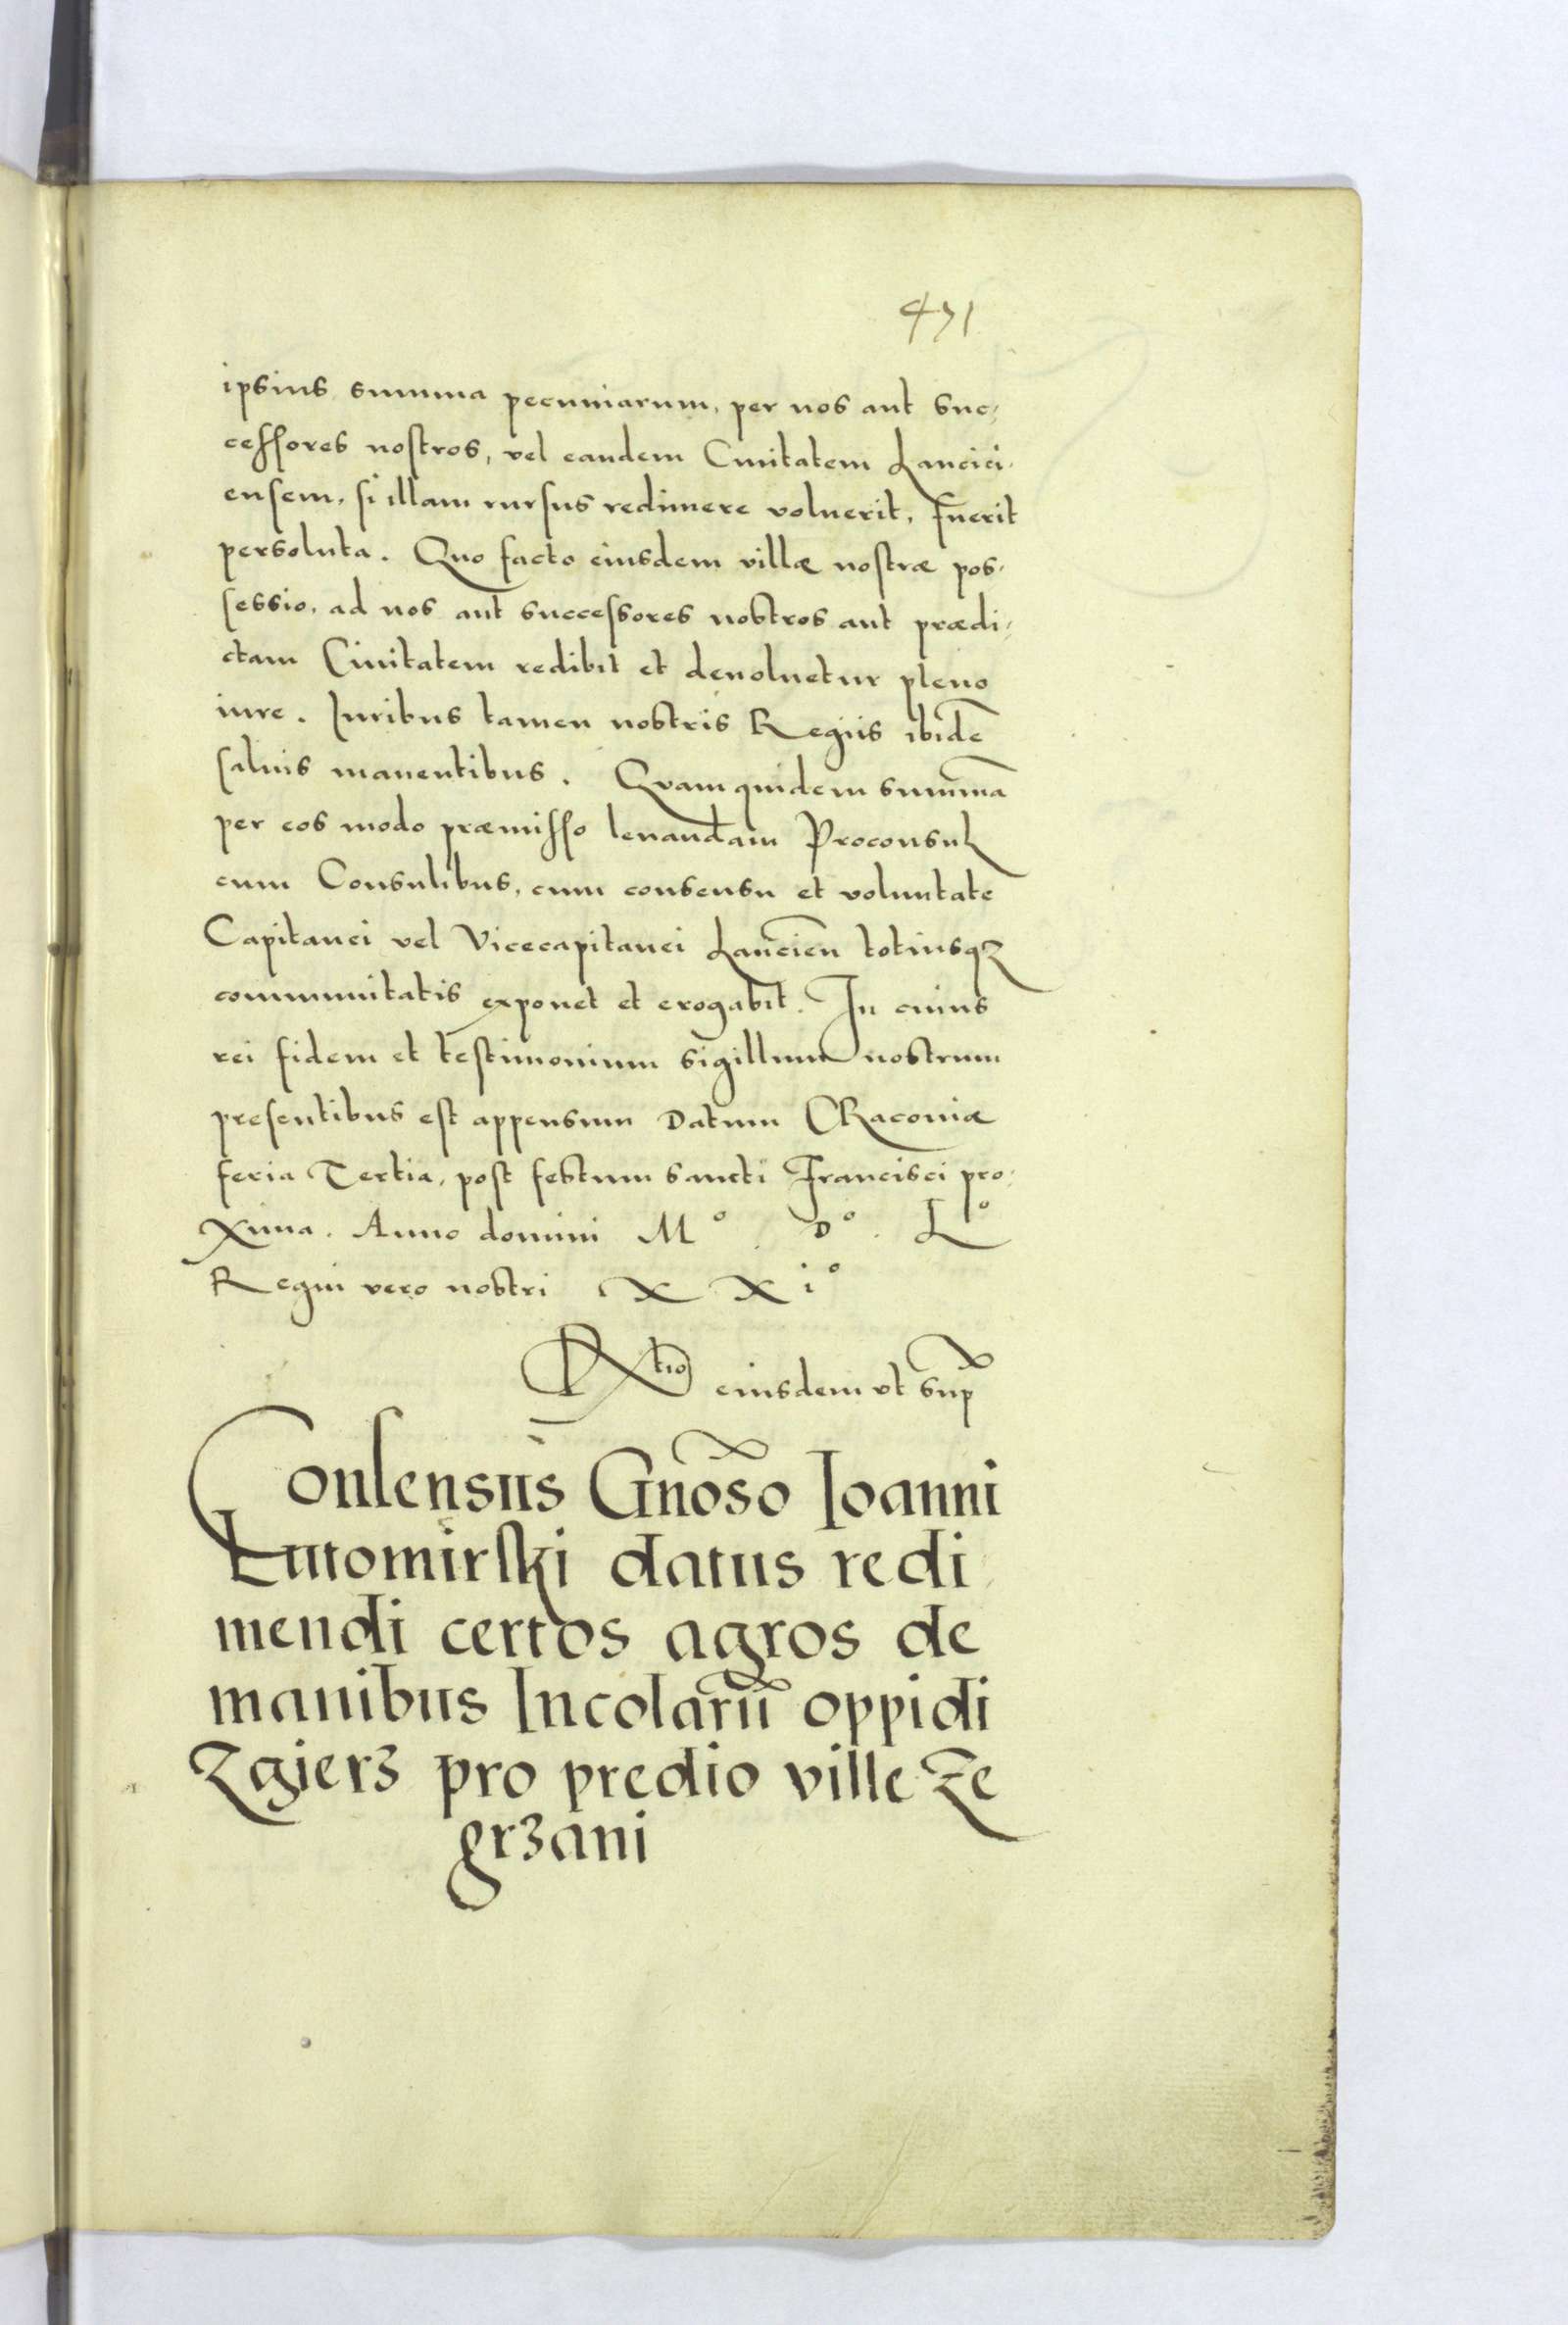 471
ipsius summa pecuniarum, per nos aut suc-
cessores nostros, vel eandem Ciuitatem Lancici-
ensem, si illam rursus redimere voluerit, fuerit
persoluta. Quo facto eiusdem villæ nostræ pos-
sessio, ad nos aut successores nostros aut prædi-
ctam Ciuitatem redibit et deuoluetur pleno
iure. Iuribus tamen nostris Regiis ibidē
saluis manentibus. Quam quidem summā
per eos modo præmisso leuandam Proconsul
cum Consulibus, cum consensu et voluntate
Capitanei vel Vicecapitanei Lancien̄ totiusqꝫ
communitatis exponet et erogabit. In cuius
rei fidem et testimonium sigillum nostrum
presentibus est appensum Datum CRacouiæ
feria Tertia, post festum sancti Francisci pro-
xima. Anno domini M° . D° . L°
Regni vero nostri XXi°
Rtio eiusdem vt sup̄
Consensus Gnōso Ioanni
Lutomirski datus redi-
mendi certos agros de
manibus Incolarū oppidi
Zgierz pro predio ville Ze
grzani